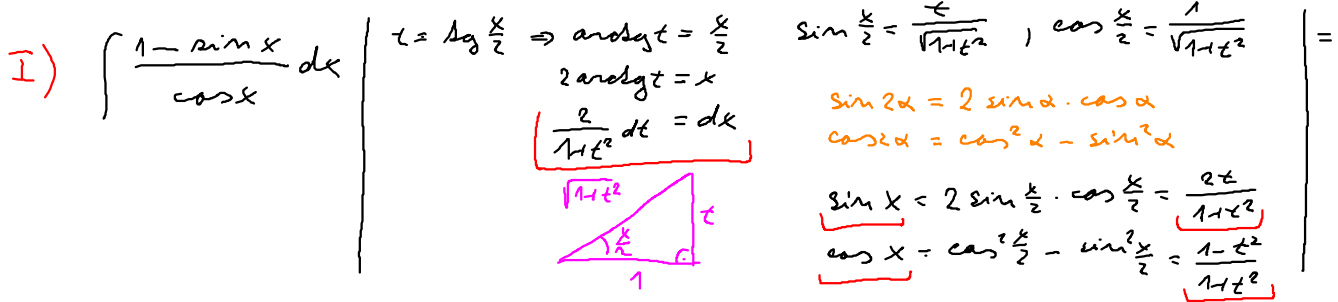 I) ∫ (1 - sin x)/(cos x) dx | t = tg x/2 ⇒ arctg t = x/2
2 arctg t = x
2/(1+t²) dt = dx
√(1+t²)
t
x/2
1
sin x/2 = t/√(1+t²) , cos x/2 = 1/√(1+t²) | =
sin 2α = 2 sin α · cos α
cos 2α = cos² α - sin² α
sin x = 2 sin x/2 · cos x/2 = 2t/(1+t²)
cos x = cos² x/2 - sin² x/2 = (1-t²)/(1+t²)